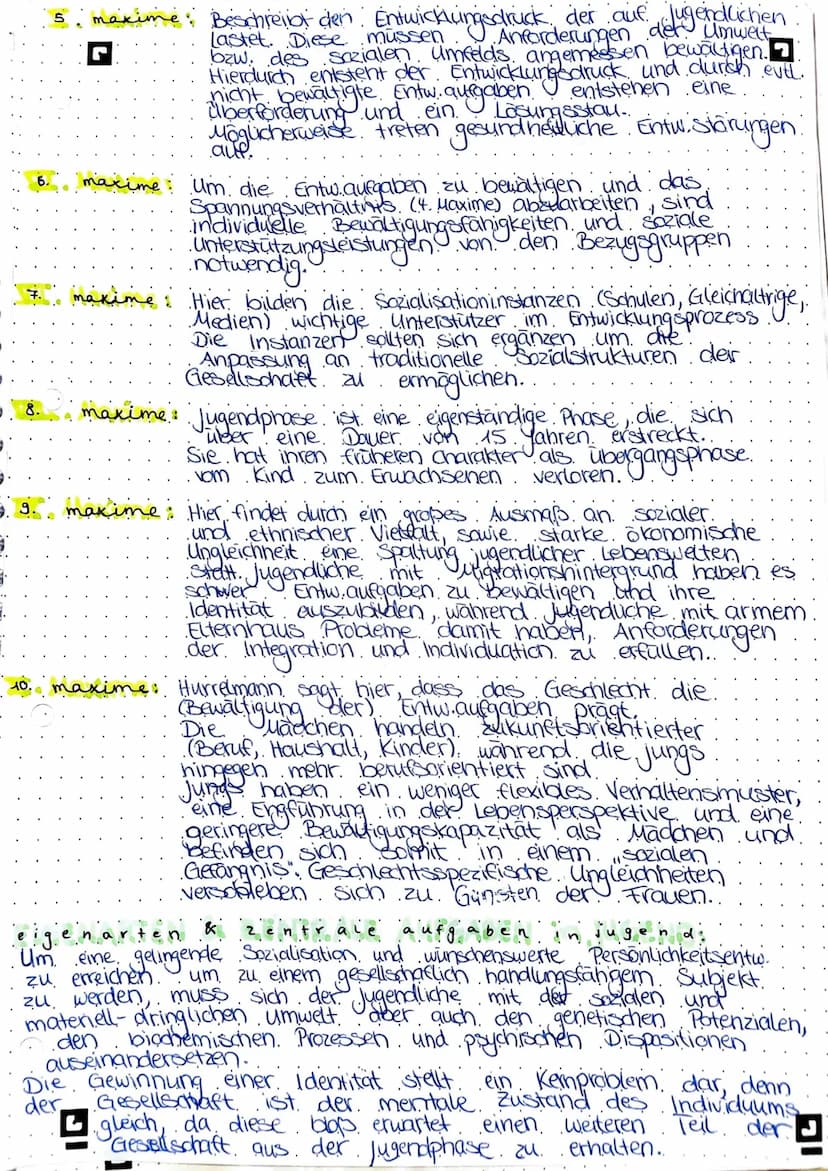 5. maxime: Beschreibt den Entwicklungsdruck der auf Jugendlichen
lastet. Diese müssen Anforderungen der Umwelt
bzw. des sozialen Umfelds angemessen bewältigen.
Hierdurch entsteht der Entwicklungsdruck und durch evtl.
nicht bewältigte Entw.aufgaben entstehen eine
Überforderung und ein Lösungsstau.
Möglicherweise treten gesundheitliche Entw.störungen
auf.
6. maxime: Um die Entw.aufgaben zu bewältigen und das
Spannungsverhältnis (4. Maxime) abzuarbeiten, sind
individuelle Bewältigungsfähigkeiten und soziale
Unterstützungsleistungen von den Bezugsgruppen
notwendig.
7. maxime: Hier bilden die Sozialisationinstanzen (Schulen, Gleichaltrige,
Medien) wichtige Unterstützer im Entwicklungsprozess
Die Instanzen sollten sich ergänzen um die
Anpassung an traditionelle Sozialstrukturen der
Gesellschaft zu ermöglichen.
8. maxime: Jugendphase ist eine eigenständige Phase, die sich
über eine Dauer von 15 Jahren erstreckt.
Sie hat ihren früheren Charakter als Übergangsphase
vom Kind zum Erwachsenen verloren.
9. maxime: Hier findet durch ein großes Ausmaß an sozialer
und ethnischer Vielfalt, sowie starke ökonomische
Ungleichheit eine Spaltung jugendlicher Lebenswelten
statt. Jugendliche mit Migrationshintergrund haben es
schwer Entw.aufgaben zu bewältigen und ihre
Identität auszubilden, während Jugendliche mit armem
Elternhaus Probleme damit haben, Anforderungen
der Integration und Individuation zu erfüllen.
10. maxime: Hurrelmann sagt hier, dass das Geschlecht die
(Bewältigung der) Entw.aufgaben prägt.
Die Mädchen handeln zukunftsorientierter
(Beruf, Haushalt, Kinder), während die Jungs
hingegen mehr berufsorientiert sind.
Jungs haben ein weniger flexibles Verhaltensmuster,
eine Engführung in der Lebensperspektive und eine
geringere Bewältigungskapazität als Mädchen und
befinden sich somit in einem „sozialen
Gefängnis". Geschlechtsspezifische Ungleichheiten
verschieben sich zu Günsten der Frauen.
eigenarten & zentrale aufgaben in jugend:
Um eine gelingende Sozialisation und wünschenswerte Persönlichkeitsentw.
zu erreichen um zu einem gesellschaflich handlungsfähgem Subjekt
zu werden, muss sich der Jugendliche mit der sozialen und
materiell-dringlichen Umwelt aber auch den genetischen Potenzialen,
den biochemischen Prozessen und psychischen Dispositionen
auseinandersetzen.
Die Gewinnung einer Identität stellt ein Kernproblem dar, denn
der Gesellschaft ist der mentale Zustand des Individuums
gleich, da diese bloß erwartet einen weiteren Teil der
Gesellschaft aus der Jugendphase zu erhalten.